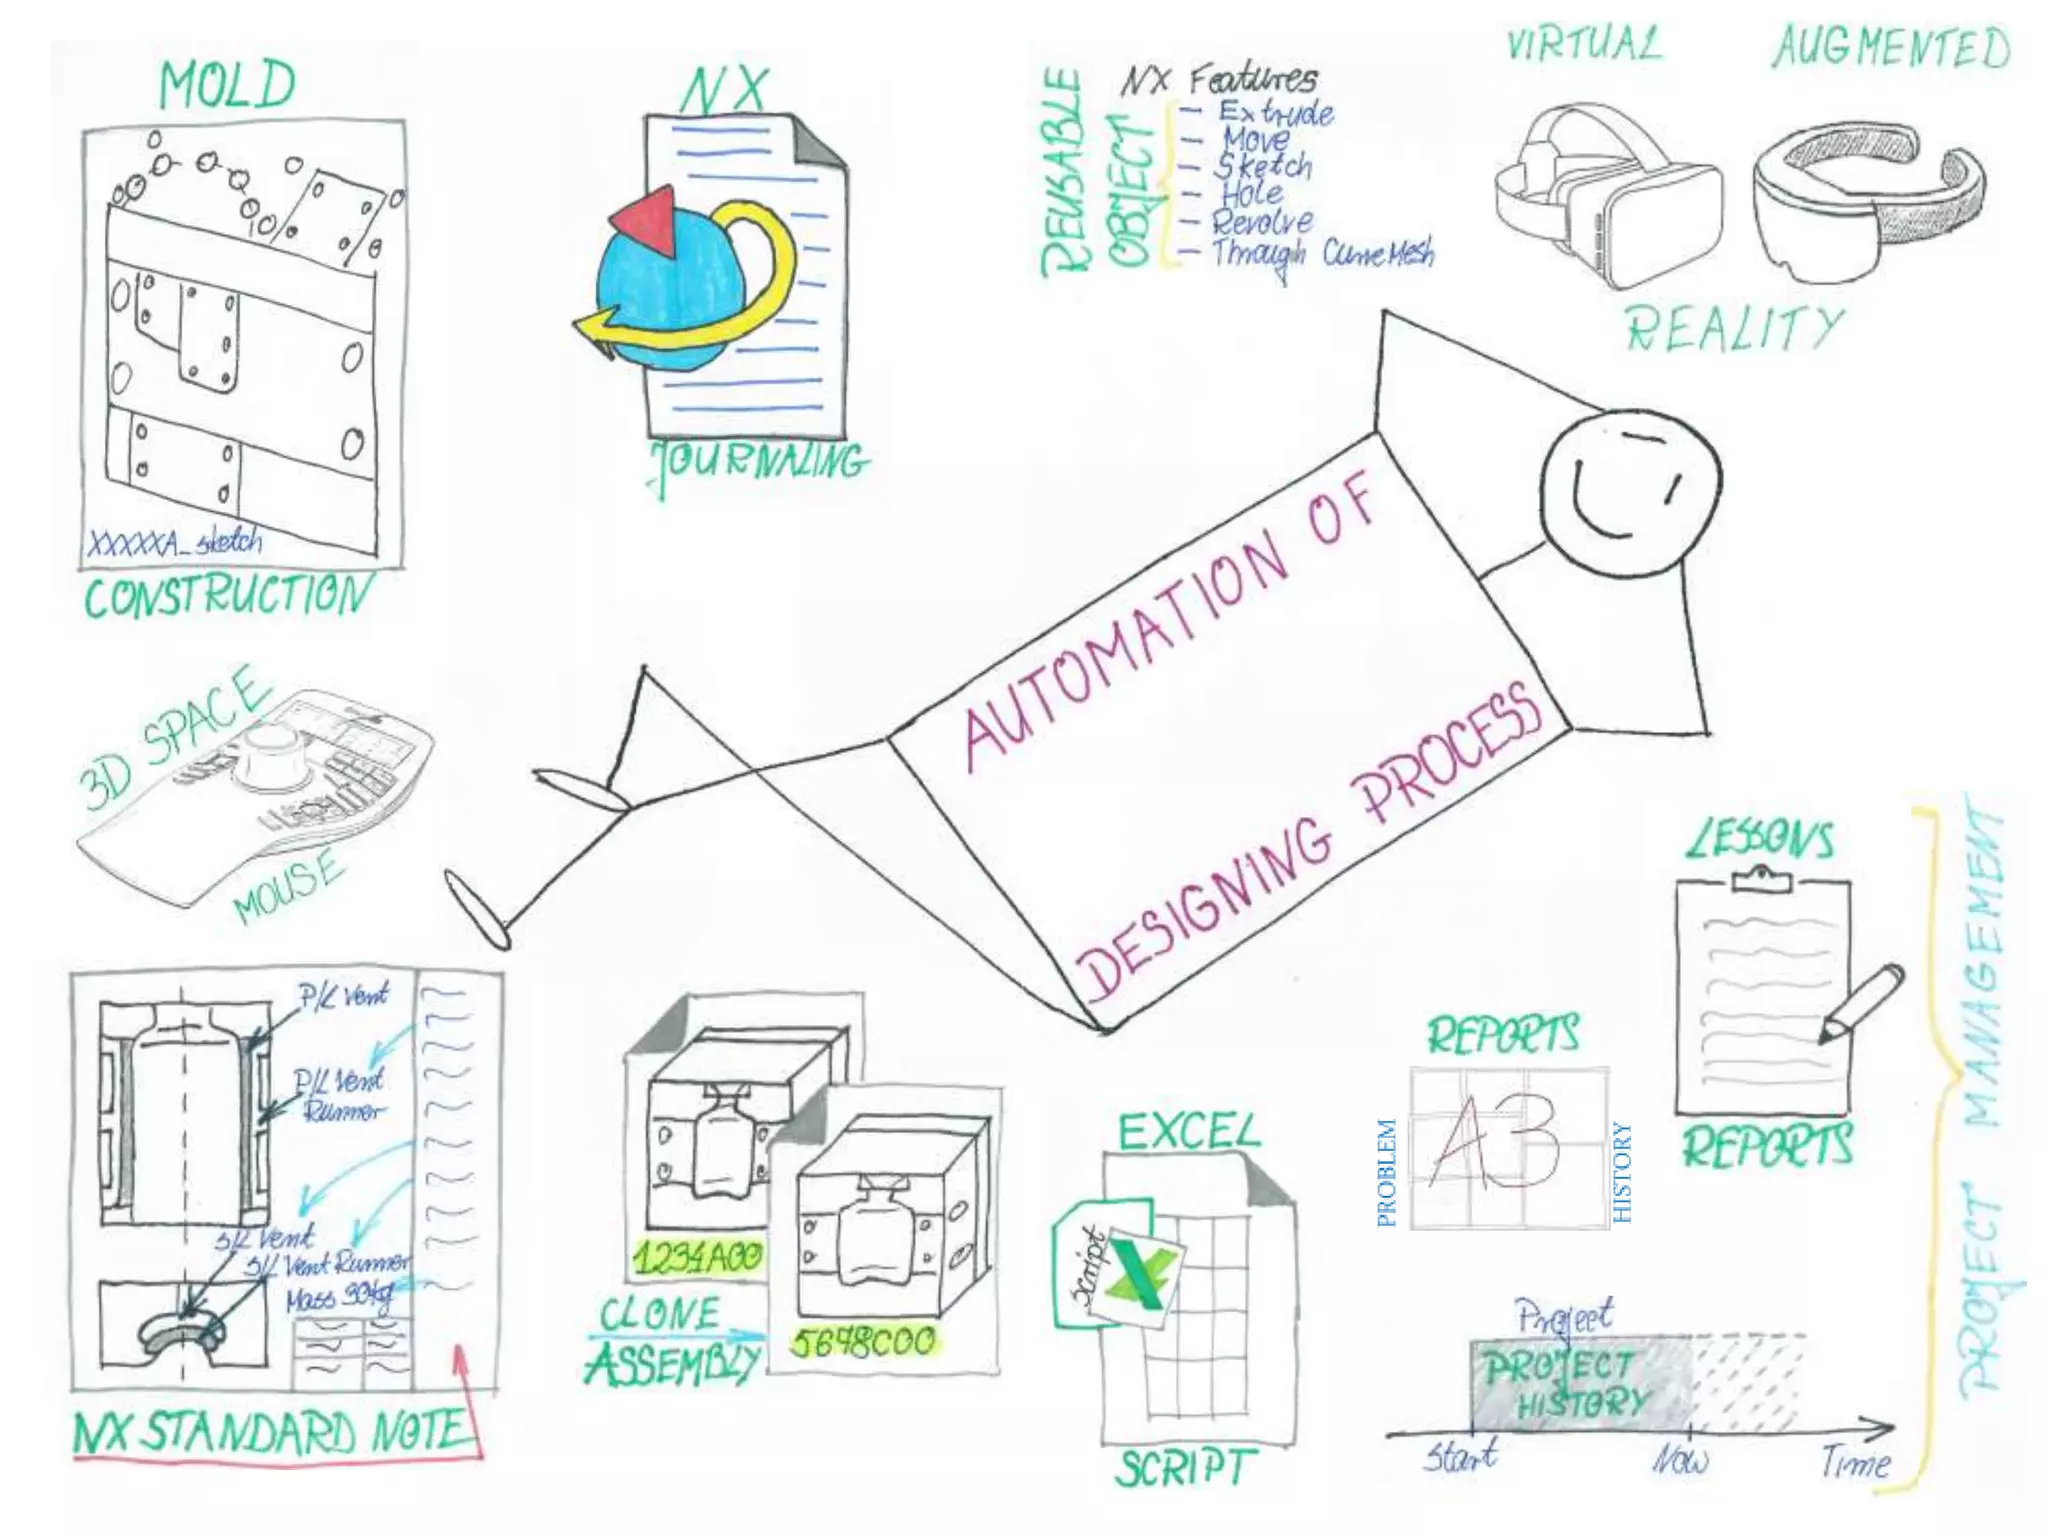 MOLD
XXXXXA_sketch
CONSTRUCTION
NX
JOURNALING
REUSABLE
OBJECT
NX Features
- Extrude
- Move
- Sketch
- Hole
- Revolve
- Through CurveMesh
VIRTUAL
AUGMENTED
REALITY
3D SPACE
MOUSE
AUTOMATION OF
DESIGNING PROCESS
P/L Vent
P/L Vent
Runner
S/L Vent
S/L Vent Runner
Mass 30kg
NX STANDARD NOTE
1234A00
5678C00
CLONE
ASSEMBLY
EXCEL
Script
SCRIPT
REPORTS
PROBLEM
A3
HISTORY
LESSONS
REPORTS
Project
PROJECT
HISTORY
Start
Now
Time
PROJECT MANAGEMENT